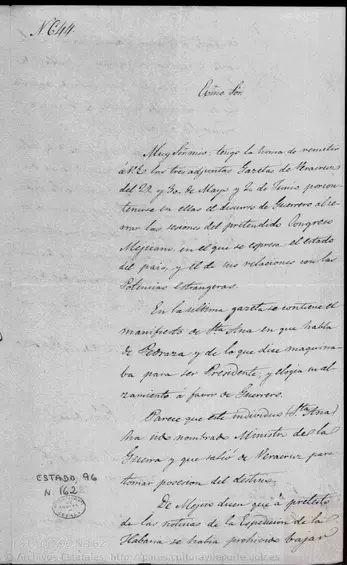 N.644.
Exmo. Sor.
Muy Sor mio: tengo la honra de remitir
á V.E. las tres adjuntas Gazetas de Veracruz
del 29 y 30 de Mayo y 2 de Junio, por con-
tenerse en ellas el discurso de Guerrero al cer-
rar las sesiones del pretendido Congreso
Mejicano, en el que se espresa el estado
del pais, y el de sus relaciones con las
Potencias estrangeras.
En la ultima gazeta se contiene el
manifiesto de Sta. Ana en que habla
de Pedraza y de lo que dice maquina-
ba para ser Presidente, y elogia su al-
zamiento á favor de Guerrero.
Parece que este individuo (Sta. Ana
ha sido nombrado Ministro de la
Guerra y que salió de Veracruz para
tomar posesion del destino.
De Mejico dicen que á pretesto
de las noticias de la Espedicion de la
Habana se habia prohivido bajar
ESTADO, 96
N. 162
Archivos Estatales, http://pares.cultura